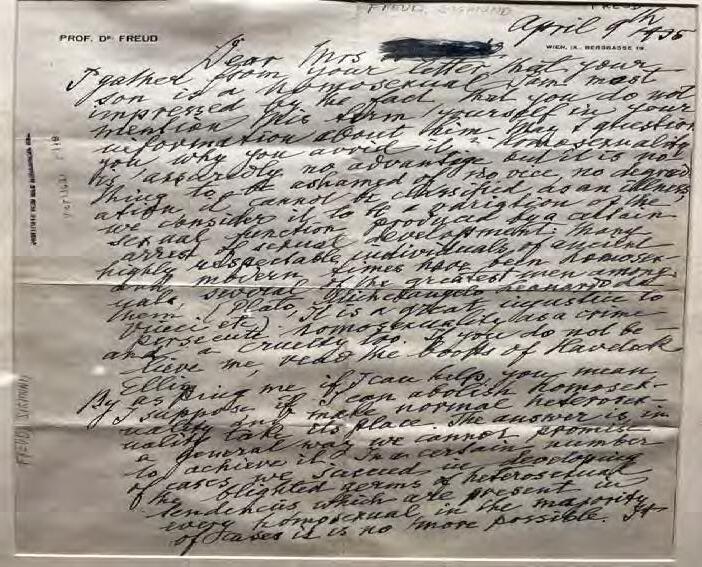 FREUD, SIGMUND
PROF. DR. FREUD
April 9th 1935
WIEN, IX., BERGGASSE 19.
Dear Mrs
I gather from your letter that your
son is a homosexual. I am most
impressed by the fact that you do not
mention this term yourself in your
information about him. May I question
you why you avoid it? Homosexuality
is assuredly no advantage but it is no-
thing to be ashamed of, no vice, no degrad-
ation, it cannot be classified as an illness;
we consider it to be a variation of the
sexual function produced by a certain
arrest of sexual development. Many
highly respectable individuals of ancient
and modern times have been homosex-
uals, several of the greatest men among
them (Plato, Michelangelo, Leonardo da
Vinci etc). It is a great injustice to
persecute homosexuality as a crime
and a cruelty too. If you do not be-
lieve me, read the books of Havelock
Ellis.
By asking me if I can help, you mean,
I suppose, if I can abolish homosex-
uality and make normal heterosex-
uality take its place. The answer is, in
a general way, we cannot promise
to achieve it. In a certain number
of cases we succeed in developing
the blighted germs of heterosexual
tendencies which are present in
every homosexual, in the majority
of cases it is no more possible. It
FREUD, SIGMUND